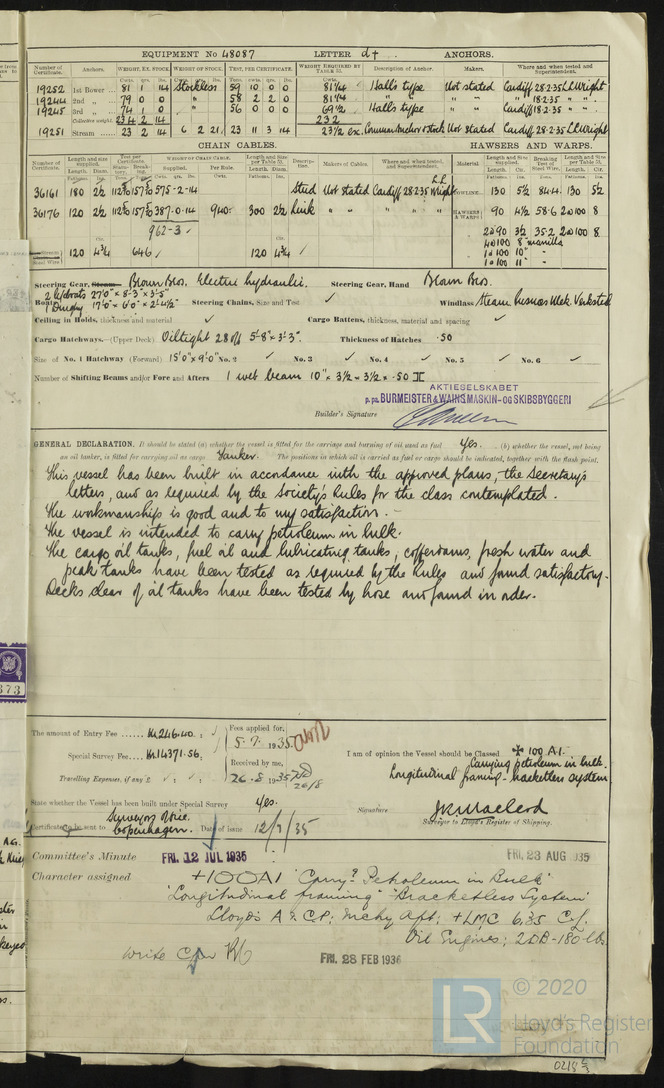 EQUIPMENT No 48087 LETTER d+ ANCHORS.
Number of Certificate. Anchors. WEIGHT, EX. STOCK. WEIGHT OF STOCK. TEST, PER CERTIFICATE. WEIGHT REQUIRED BY TABLE 53. Description of Anchor. Makers. Where and when tested and Superintendent.
19252 1st Bower 81 1 14 Stockless 59 10 0 0 81 1/4 Hall's type Not stated Cardiff 28.2.35 L.L.Wright
19244 2nd " 79 0 0 " 58 2 2 0 81 1/4 " " " " " 18.2.35 " "
19245 3rd " 74 1 0 " 56 0 0 0 69 1/2 Hall's type " " Cardiff 18.2.35 " "
Collective weight 234 2 14 232
19251 Stream 23 2 14 6 2 21 23 11 3 14 23 1/2 ex. Common Anchor & stock Not stated Cardiff 28.2.35 L.L.Wright
CHAIN CABLES. HAWSERS AND WARPS.
36161 180 2 1/2 575-2-14 Stud Not stated Cardiff 28.2.35 Wright 130 5 1/2 84.4 130 5 1/2
36176 120 2 1/2 387-0-14 940 300 2 1/2 Link " " " " HAWSERS & WARPS 90 4 1/2 58.6 2@100 8
962-3 2@90 3 1/2 35.2 2@100 8
4@100 8" manilla
120 4 3/4 646 120 4 3/4 1@100 10" "
1@100 11" "
Steering Gear, Steam Brown Bros. Electric hydraulic. Steering Gear, Hand Brown Bros.
Boats 2 Lifeboats 27'0" × 8'-3" × 3'-5"
1 Dinghy 17'0" × 6'0" × 2'-4 1/2" Steering Chains, Size and Test ✓ Windlass Steam
Ceiling in Holds, thickness and material ✓ Cargo Battens, thickness, material and spacing ✓
Cargo Hatchways.—(Upper Deck) Oiltight 28 off 5'-8" × 3'-3". Thickness of Hatches .50
Size of No. 1 Hatchway (Forward) 15'0" × 9'0" No. 2 ✓ No. 3 ✓ No. 4 ✓ No. 5 ✓ No. 6 ✓
Number of Shifting Beams and/or Fore and Afters 1 web beam 10" × 3 1/2 × 3 1/2 × .50
AKTIESELSKABET
p.pa. BURMEISTER & WAIN'S MASKIN- OG SKIBSBYGGERI
Builder's Signature
GENERAL DECLARATION. It should be stated (a) whether the vessel is fitted for the carriage and burning of oil used as fuel Yes. (b) whether the vessel, not being
an oil tanker, is fitted for carrying oil as cargo Tanker. The positions in which oil is carried as fuel or cargo should be indicated, together with the flash point.
This vessel has been built in accordance with the approved plans, the Secretary's
letters, and as required by the Society's Rules for the class contemplated.
The workmanship is good and to my satisfaction. -
The vessel is intended to carry petroleum in bulk.
The cargo oil tanks, fuel oil and lubricating tanks, cofferdams, fresh water and
peak tanks have been tested as required by the Rules and found satisfactory.
Decks clear of oil tanks have been tested by hose and found in order.
The amount of Entry Fee ...... Kr.246.40. Fees applied for,
5.7.1935.
Special Survey Fee.... Kr.14371.56. Received by me,
Travelling Expenses, if any £ 26.8.1935
26/8
I am of opinion the Vessel should be Classed ✠ 100 A1.
Carrying petroleum in bulk.
Longitudinal framing - bracketless system
State whether the Vessel has been built under Special Survey Yes.
Signature J.R. Macleod
Surveyor to Lloyd's Register of Shipping.
Certificate to be sent to Surveyors Office. Copenhagen. Date of issue 12/7/35
Committee's Minute FRI. 12 JUL 1935 FRI. 23 AUG 1935
Character assigned +100A1 "Carry.g Petroleum in Bulk"
"Longitudinal framing" "Bracketless System"
Lloyd's A & C.P.; Mchy Aft; +LMC 6.35 C.L.
Oil Engines; 2DB-180 lbs
Write FRI. 28 FEB 1936
LR
© 2020
Lloyd's Register
Foundation
373